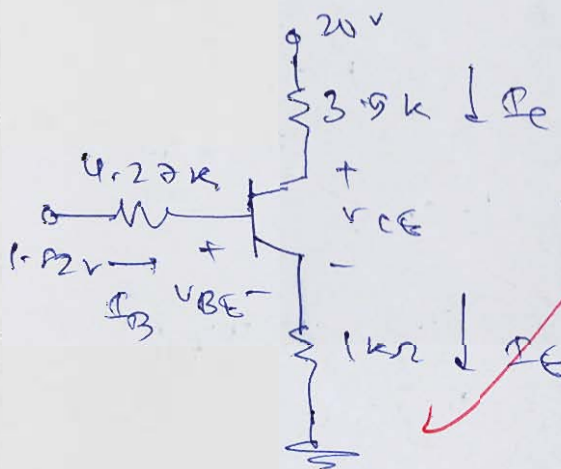 20 v
3.9 k ↓ Ic
4.27K
+
VCE
-
1.82v →
IB
+ VBE -
1kΩ ↓ IE